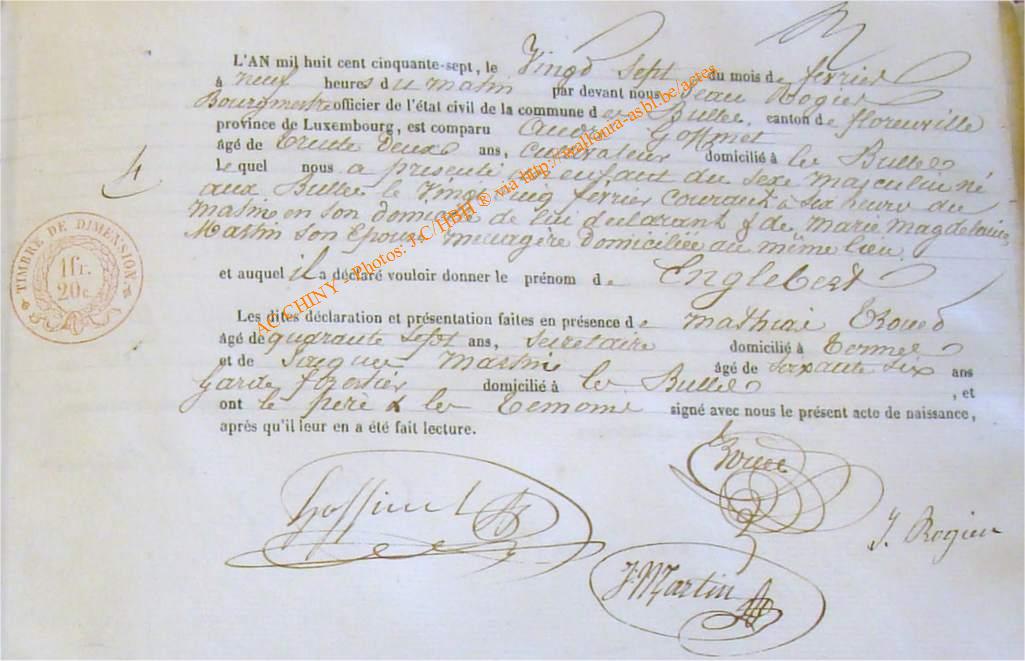 L'AN mil huit cent cinquante-sept, le Vingd Sept du mois de fevrier
à neuf heures du matin par devant nous Jean Rogier
Bourgmestre officier de l'état civil de la commune des Bulles, canton de florenville
province de Luxembourg, est comparu Goffinet
âgé de trente Deux ans, cultivateur domicilié à les Bulles
Lequel nous a presenté un enfant du sexe masculin né
aux Bulles le Vingt cinq fevrier courant à six heure du
matin en son domicile de lui declarant & de marie magdelaine
Martin son Epouse menagère domiciliée au même lieu
et auquel il a déclaré vouloir donner le prénom de Englebert
4
TIMBRE DE DIMENSION
1 fr.
20 c.
Les dites déclaration et présentation faites en présence de mathiai
âgé de quarante sept ans, secretaire domicilié à termes
et de Jaque Martin âgé de soixante six ans
Garde forestier domicilié à les Bulles, et
ont le père & les temoins signé avec nous le présent acte de naissance,
après qu'il leur en a été fait lecture.
Goffinet
J. Rogier
J. Martin
AC CHINY - Photos: J.C/HBH ® via http://wallonia-asbl.be/actes